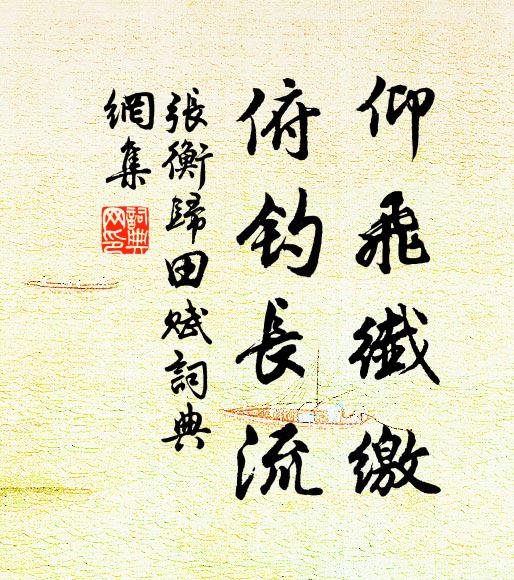 仰飛纖繳
俯钓長流
張衡歸田賦詞典
網集
詞典
网印